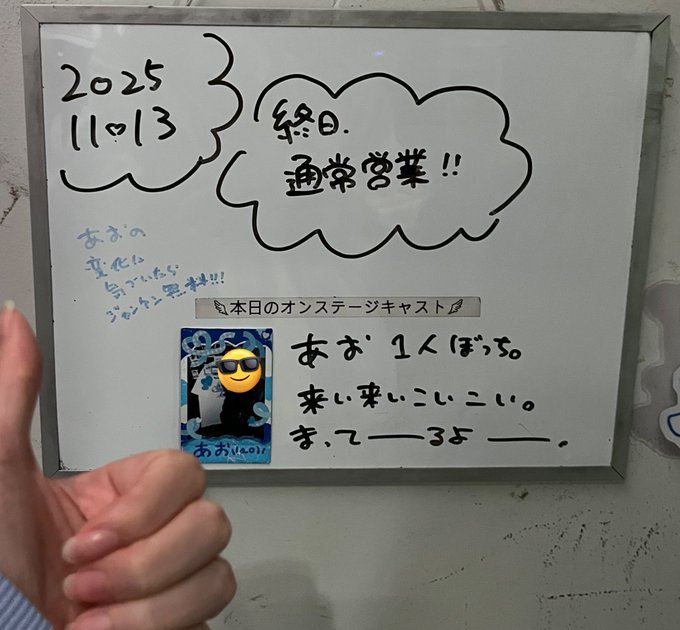 2025
11.13
終日.
通常営業!!
あおの
変化に
気づいたら
ジャンケン無料!!!
本日のオンステージキャスト
あお 1人ぼっち。
来い来いこいこい。
まってーーるよーー.
あお